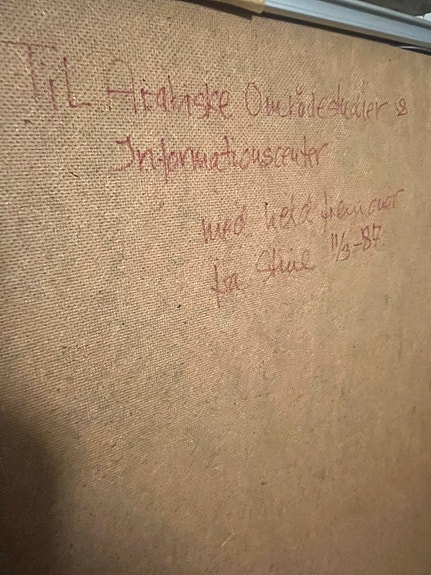 Til Arabiske Områdestudier &
Informationscenter
med held fremover
fra Stine 11/3-87